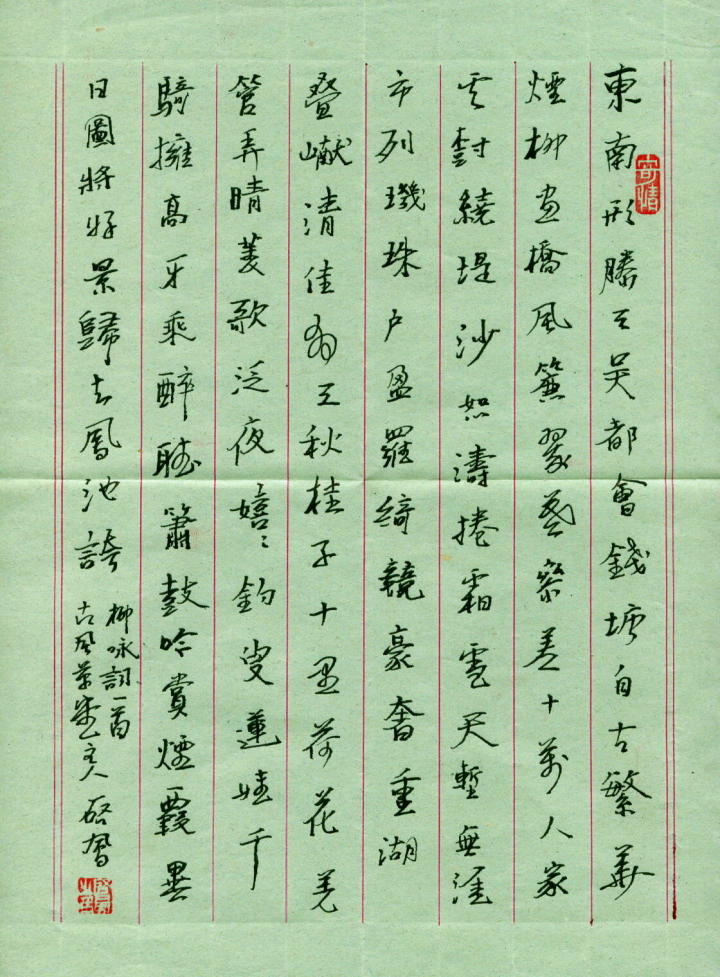 寄情
東南形勝三吳都會錢塘自古繁華
煙柳畫橋風簾翠幕參差十萬人家
雲樹繞堤沙怒濤捲霜雪天塹無涯
市列璣珠戶盈羅綺競豪奢重湖
疊巘清佳有三秋桂子十里荷花羌
管弄晴菱歌泛夜嬉〻釣叟蓮娃千
騎擁高牙乘醉聽簫鼓吟賞煙霞異
日圖將好景歸去鳳池誇
柳咏詞一首
古風草堂主人